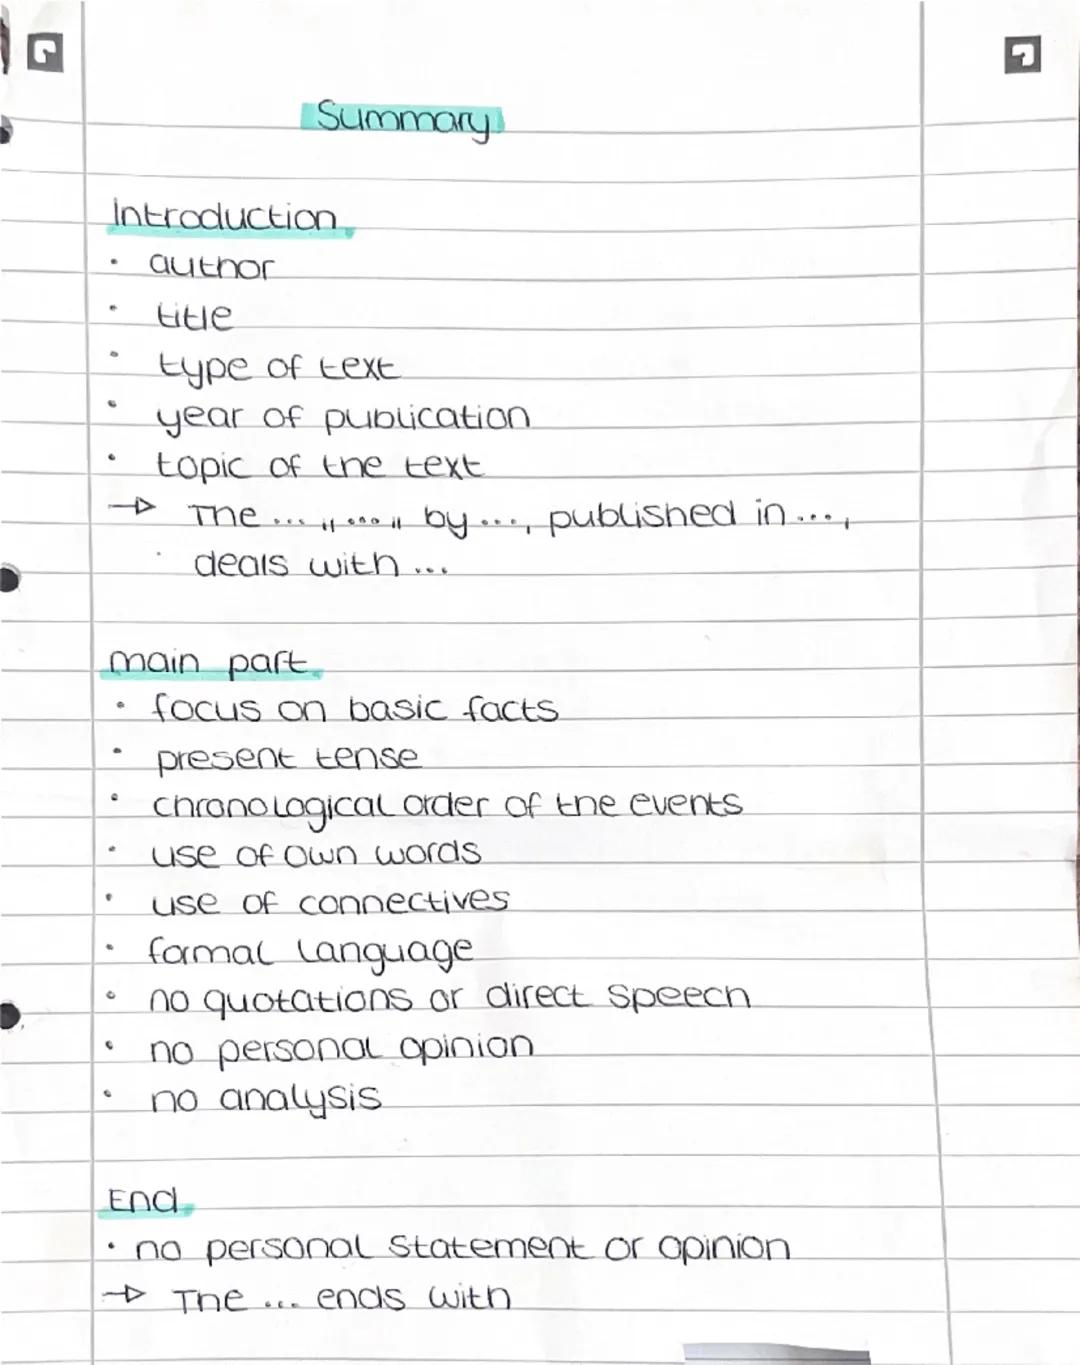 Summary
Introduction
• author
• title
• type of text
• year of publication
• topic of the text
→ The ... "..." by ..., published in ...,
deals with ...
main part
• focus on basic facts
• present tense
• chronological order of the events
• use of own words
• use of connectives
• formal language
• no quotations or direct speech
• no personal opinion
• no analysis
End
• no personal statement or opinion
→ The ... ends with